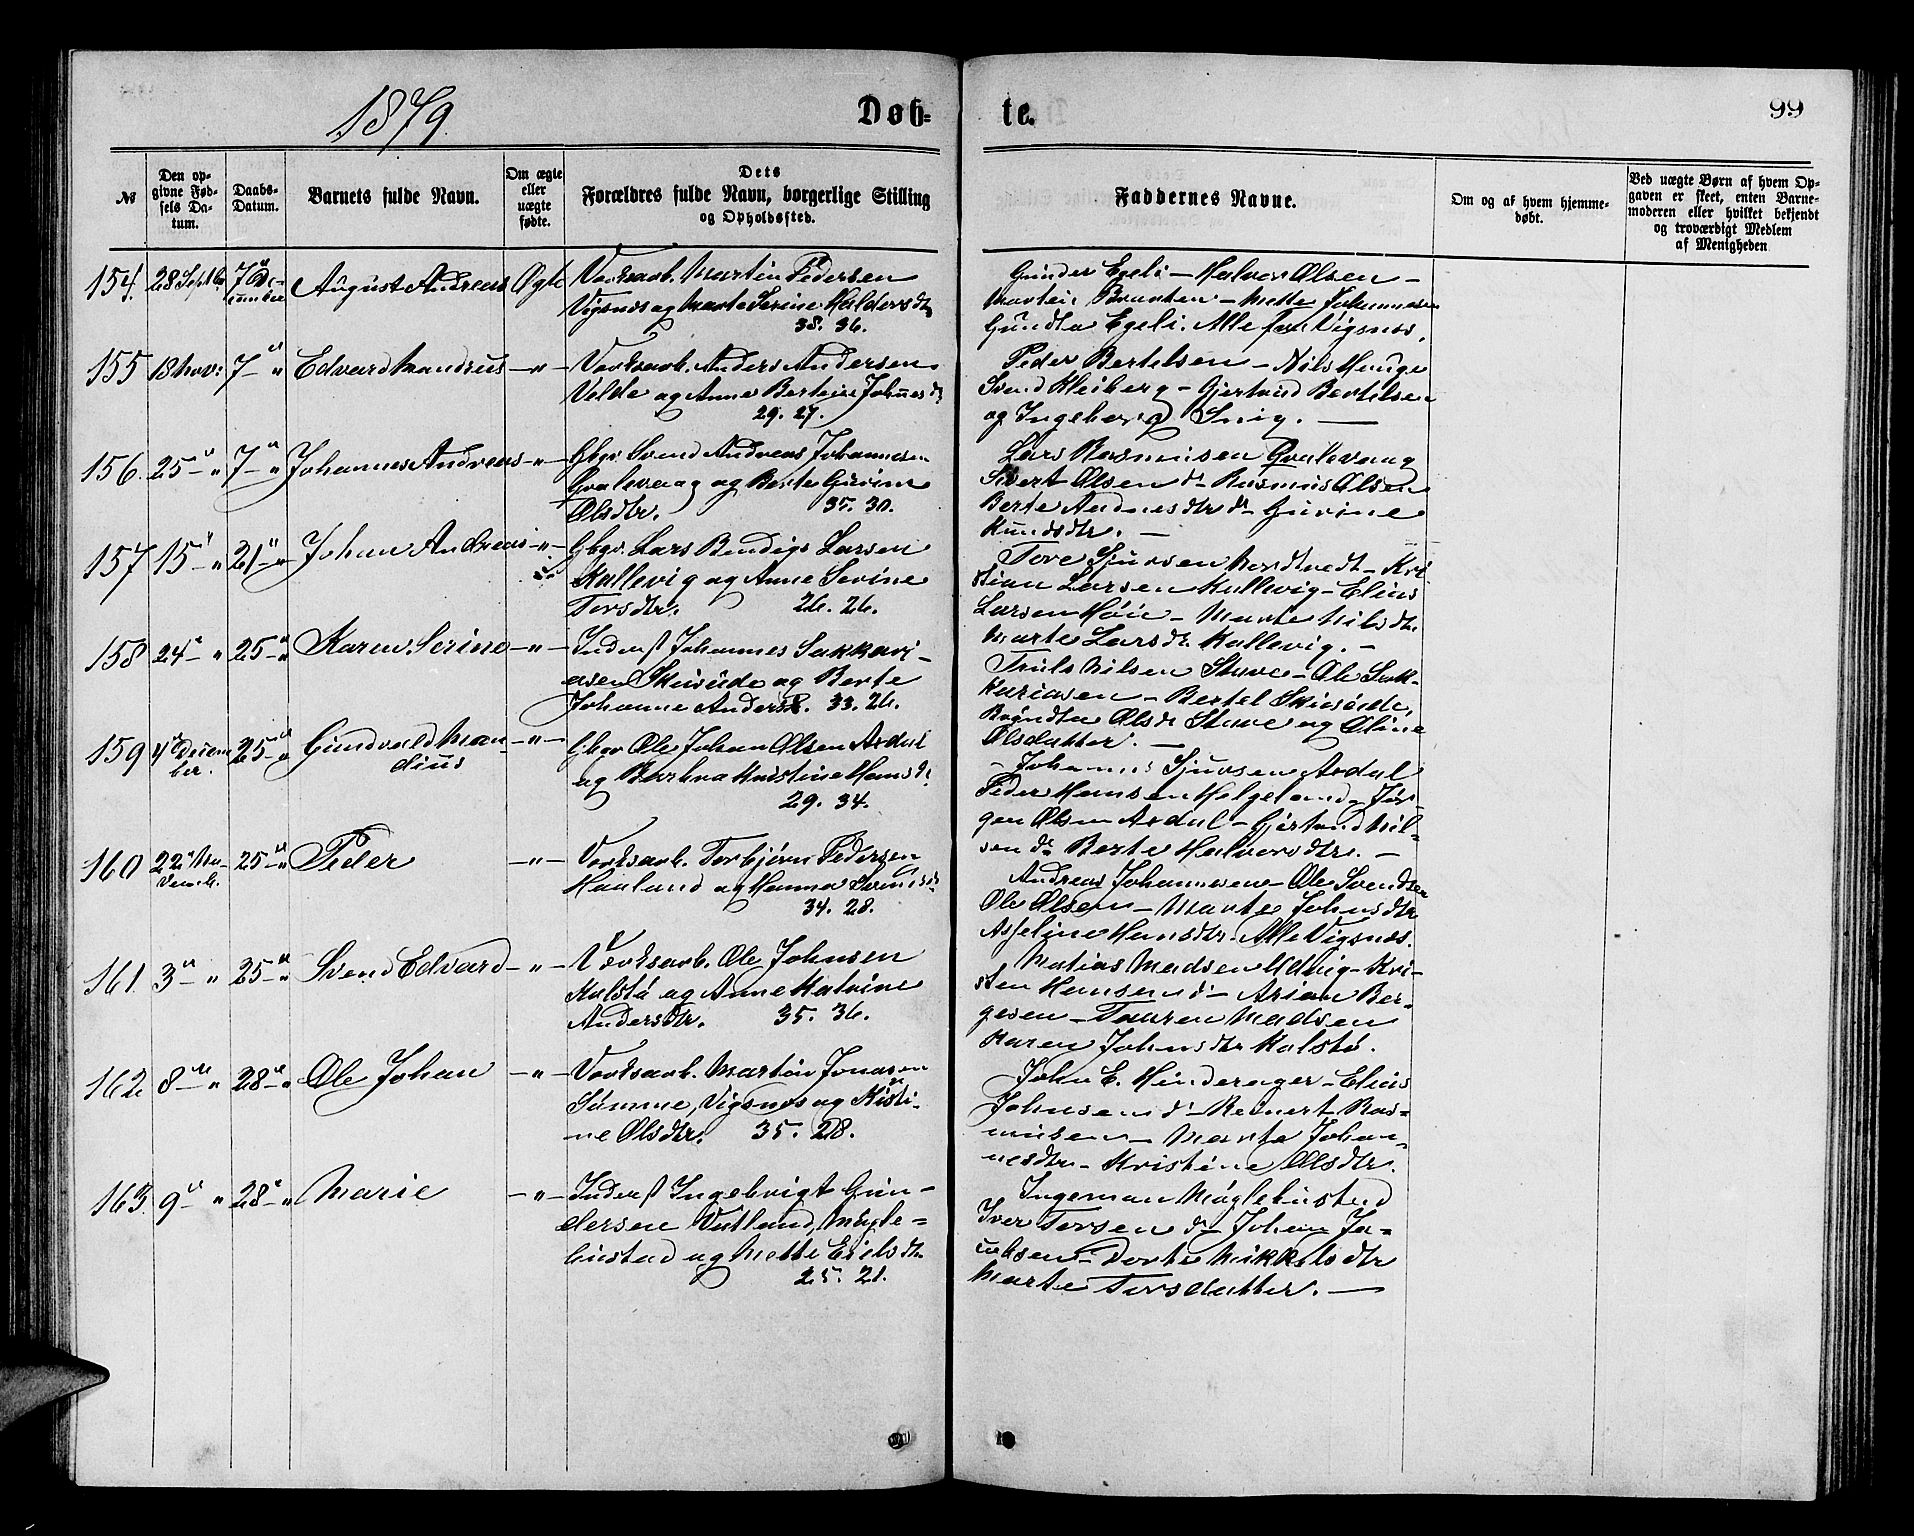 1879
Døb-
te.
99
№
Den op-
givne Fød-
sels Da-
tum.
Daabs-
Datum.
Barnets fulde Navn.
Om ægte
eller
uægte
fødte.
Dets
Forældres fulde Navn, borgerlige Stilling
og Opholdssted.
Faddernes Navne.
Om og af hvem hjemme-
døbt.
Ved uægte Børn af hvem Op-
gaven er skeet, enten Barne-
moderen eller hvilket bekjendt
og troværdigt Medlem
af Menigheden
154. 28 Septbr 7 De-
cember
August Andreas Ægte
Værksarb. Martin Pedersen
Vigsnæs og Marte Serine Haldorsdtr
38. 36.
Gunder Egeli - Halvor Olsen -
Martin Braaten - Mette Johannesen
Gundla Egeli. Alle fra Vigsnæs.
155 18 Nov: 7 - "
Edvard Mandius - " -
Værksarb. Anders Andersen
Velde og Anne Bertine Johnsdtr
29. 27.
Peder Bertelsen - Nils Hauge
Svend Kleiberg - Gjertrud Bertelsen
og Ingeborg Snig. -
156. 25 - " 7 - " Johannes Andreas - " -
Gbgr Svend Andreas Johannesen
Qvalevaag og Berte Gurine
Olsdtr. 35. 30.
Lars Rasmusen Qvalevaag
Sivert Olsen do - Rasmus Olsen
Berte Andreasdtr do - Gurine
Knudsdtr. -
157 15 - " 21 - " Johan Andreas - " -
Gbgr. Lars Bendigs Larsen
Kallevig og Anne Serine
Torsdtr. 26. 26.
Tore Sjursen Nordtvedt - Kri-
stian Larsen Kallevig - Elias
Larsen Høie - Marte Nilsdtr.
Marte Larsdtr Kallevig. -
158 24 - " 25 - " Karen Serine - " -
Inderst Johannes Sakkari-
asen Skeisüde og Berte
Johanne Andersd. 33. 26.
Truls Nilsen Stave - Ole Sak-
kariasen - Bertel Skeisüde,
Ragndla Olsdr Stave og Oline
Olsdatter. -
159 4 Decem-
ber. 25 - " Gundvald Man-
dius - " -
Gbgr Ole Johan Olsen Ardal
og Barbra Kristine Hansdr
29. 34.
- Johannes Sjursen Ardal
Peder Hansen Helgeland - Jør-
gen Olsen Ardal - Gjertrud Nil-
sen do Berte Halvorsdtr. -
160 22 No-
vemb. 25 - " Peder - " -
Værksarb. Torbjørn Pedersen
Haaland og Hanna
34. 28.
Andreas Johannesen - Ole Svendsen
Ole Olsen - Marte Johnsdtr
Asseline Hansdtr. Alle Vigsnæs.
161 3 - " 25 - " Svend Edvard - " -
Værksarb. Ole Johnsen
Kalstø og Anne Malvine
Andersdtr. 35. 36.
Matias Madsen Udvig - Kri-
sten Hansen do - Arian Ber-
gesen - Tauren Madsen
Karen Johnsdtr Kalstø.
162 8 - " 28 - " Ole Johan - " -
Værksarb. Martin Jonasen
Sømme, Vigsnæs og Kisti-
ne Olsdtr. 35. 28.
John E. Hinderager - Elias
Johnsen do - Reinert Ras-
musen - Marta Johan-
nesdtr - Kristine Olsdtr.
163 9 - " 28 - " Marie - " -
Inderst Ingebrigt Gun-
dersen Vatland, Møgle-
bustad og Mette Eielsdtr
25. 21.
Ingeman Møglebustad
Iver Torsen do - Johan Ja-
cobsen - Dorte Mikkelsdtr
Marte Torsdatter. -